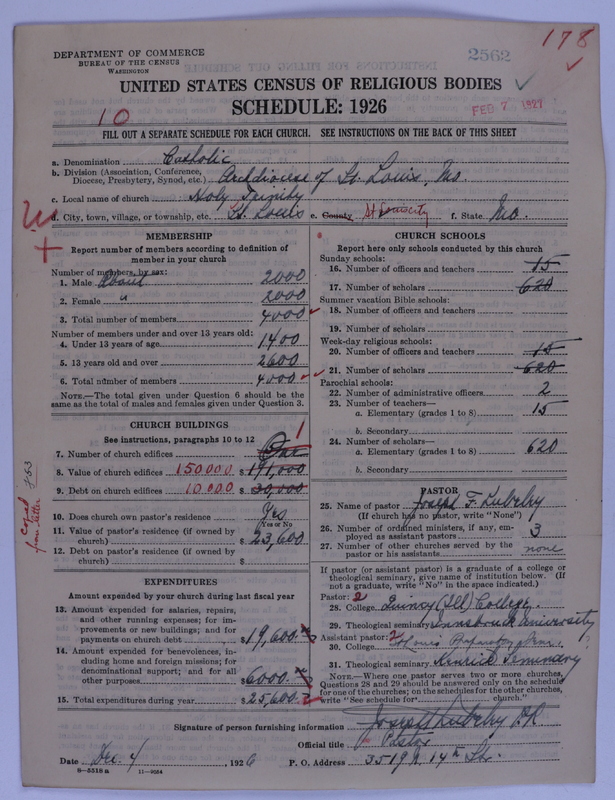 178
2562
DEPARTMENT OF COMMERCE
BUREAU OF THE CENSUS
WASHINGTON
UNITED STATES CENSUS OF RELIGIOUS BODIES
SCHEDULE: 1926
FEB 7 1927
10
FILL OUT A SEPARATE SCHEDULE FOR EACH CHURCH. SEE INSTRUCTIONS ON THE BACK OF THIS SHEET
a. Denomination Catholic
b. Division (Association, Conference, Diocese, Presbytery, Synod, etc.) Archdiocese of St. Louis, Mo.
c. Local name of church Holy Trinity
d. City, town, village, or township, etc. St. Louis e. County St Louis city f. State Mo.
MEMBERSHIP
Report number of members according to definition of member in your church
Number of members, by sex:
1. Male About 2000
2. Female " 2000
3. Total number of members 4000
Number of members under and over 13 years old:
4. Under 13 years of age 1400
5. 13 years old and over 2600
6. Total number of members 4000
NOTE.—The total given under Question 6 should be the same as the total of males and females given under Question 3.
CHURCH BUILDINGS
See instructions, paragraphs 10 to 12
7. Number of church edifices One 1
8. Value of church edifices 150.000 $191,000
9. Debt on church edifices 10.000 $30,000
10. Does church own pastor's residence Yes
(Yes or No)
11. Value of pastor's residence (if owned by church) $23,600
12. Debt on pastor's residence (if owned by church) $
copied from letter
EXPENDITURES
Amount expended by your church during last fiscal year
13. Amount expended for salaries, repairs, and other running expenses; for improvements or new buildings; and for payments on church debt $19,600
14. Amount expended for benevolences, including home and foreign missions; for denominational support; and for all other purposes $6000
15. Total expenditures during year $25600
CHURCH SCHOOLS
Report here only schools conducted by this church
Sunday schools:
16. Number of officers and teachers 15
17. Number of scholars 620
Summer vacation Bible schools:
18. Number of officers and teachers
19. Number of scholars
Week-day religious schools:
20. Number of officers and teachers 15
21. Number of scholars 620
Parochial schools:
22. Number of administrative officers 2
23. Number of teachers—
a. Elementary (grades 1 to 8) 15
b. Secondary
24. Number of scholars—
a. Elementary (grades 1 to 8) 620
b. Secondary
PASTOR
25. Name of pastor Joseph F. Lubeley
(If church has no pastor, write "None")
26. Number of ordained ministers, if any, employed as assistant pastors 3
27. Number of other churches served by the pastor or his assistants none
If pastor (or assistant pastor) is a graduate of a college or theological seminary, give name of institution below. (If not a graduate, write "No" in the space indicated.)
Pastor: 2
28. College Quincy (Ill) College
29. Theological seminary Innsbruck University
Assistant pastor: 2
30. College St Louis Preparatory Sem.
31. Theological seminary Kenrick Seminary
NOTE.—Where one pastor serves two or more churches, Questions 28 and 29 should be answered only on the schedule for one of the churches; on the schedules for the other churches, write "See schedule for church."
Signature of person furnishing information Joseph Lubeley
Official title Pastor
Date Dec. 4, 1926 P. O. Address 3519 N. 14th St.
8—5518 a 11—9664